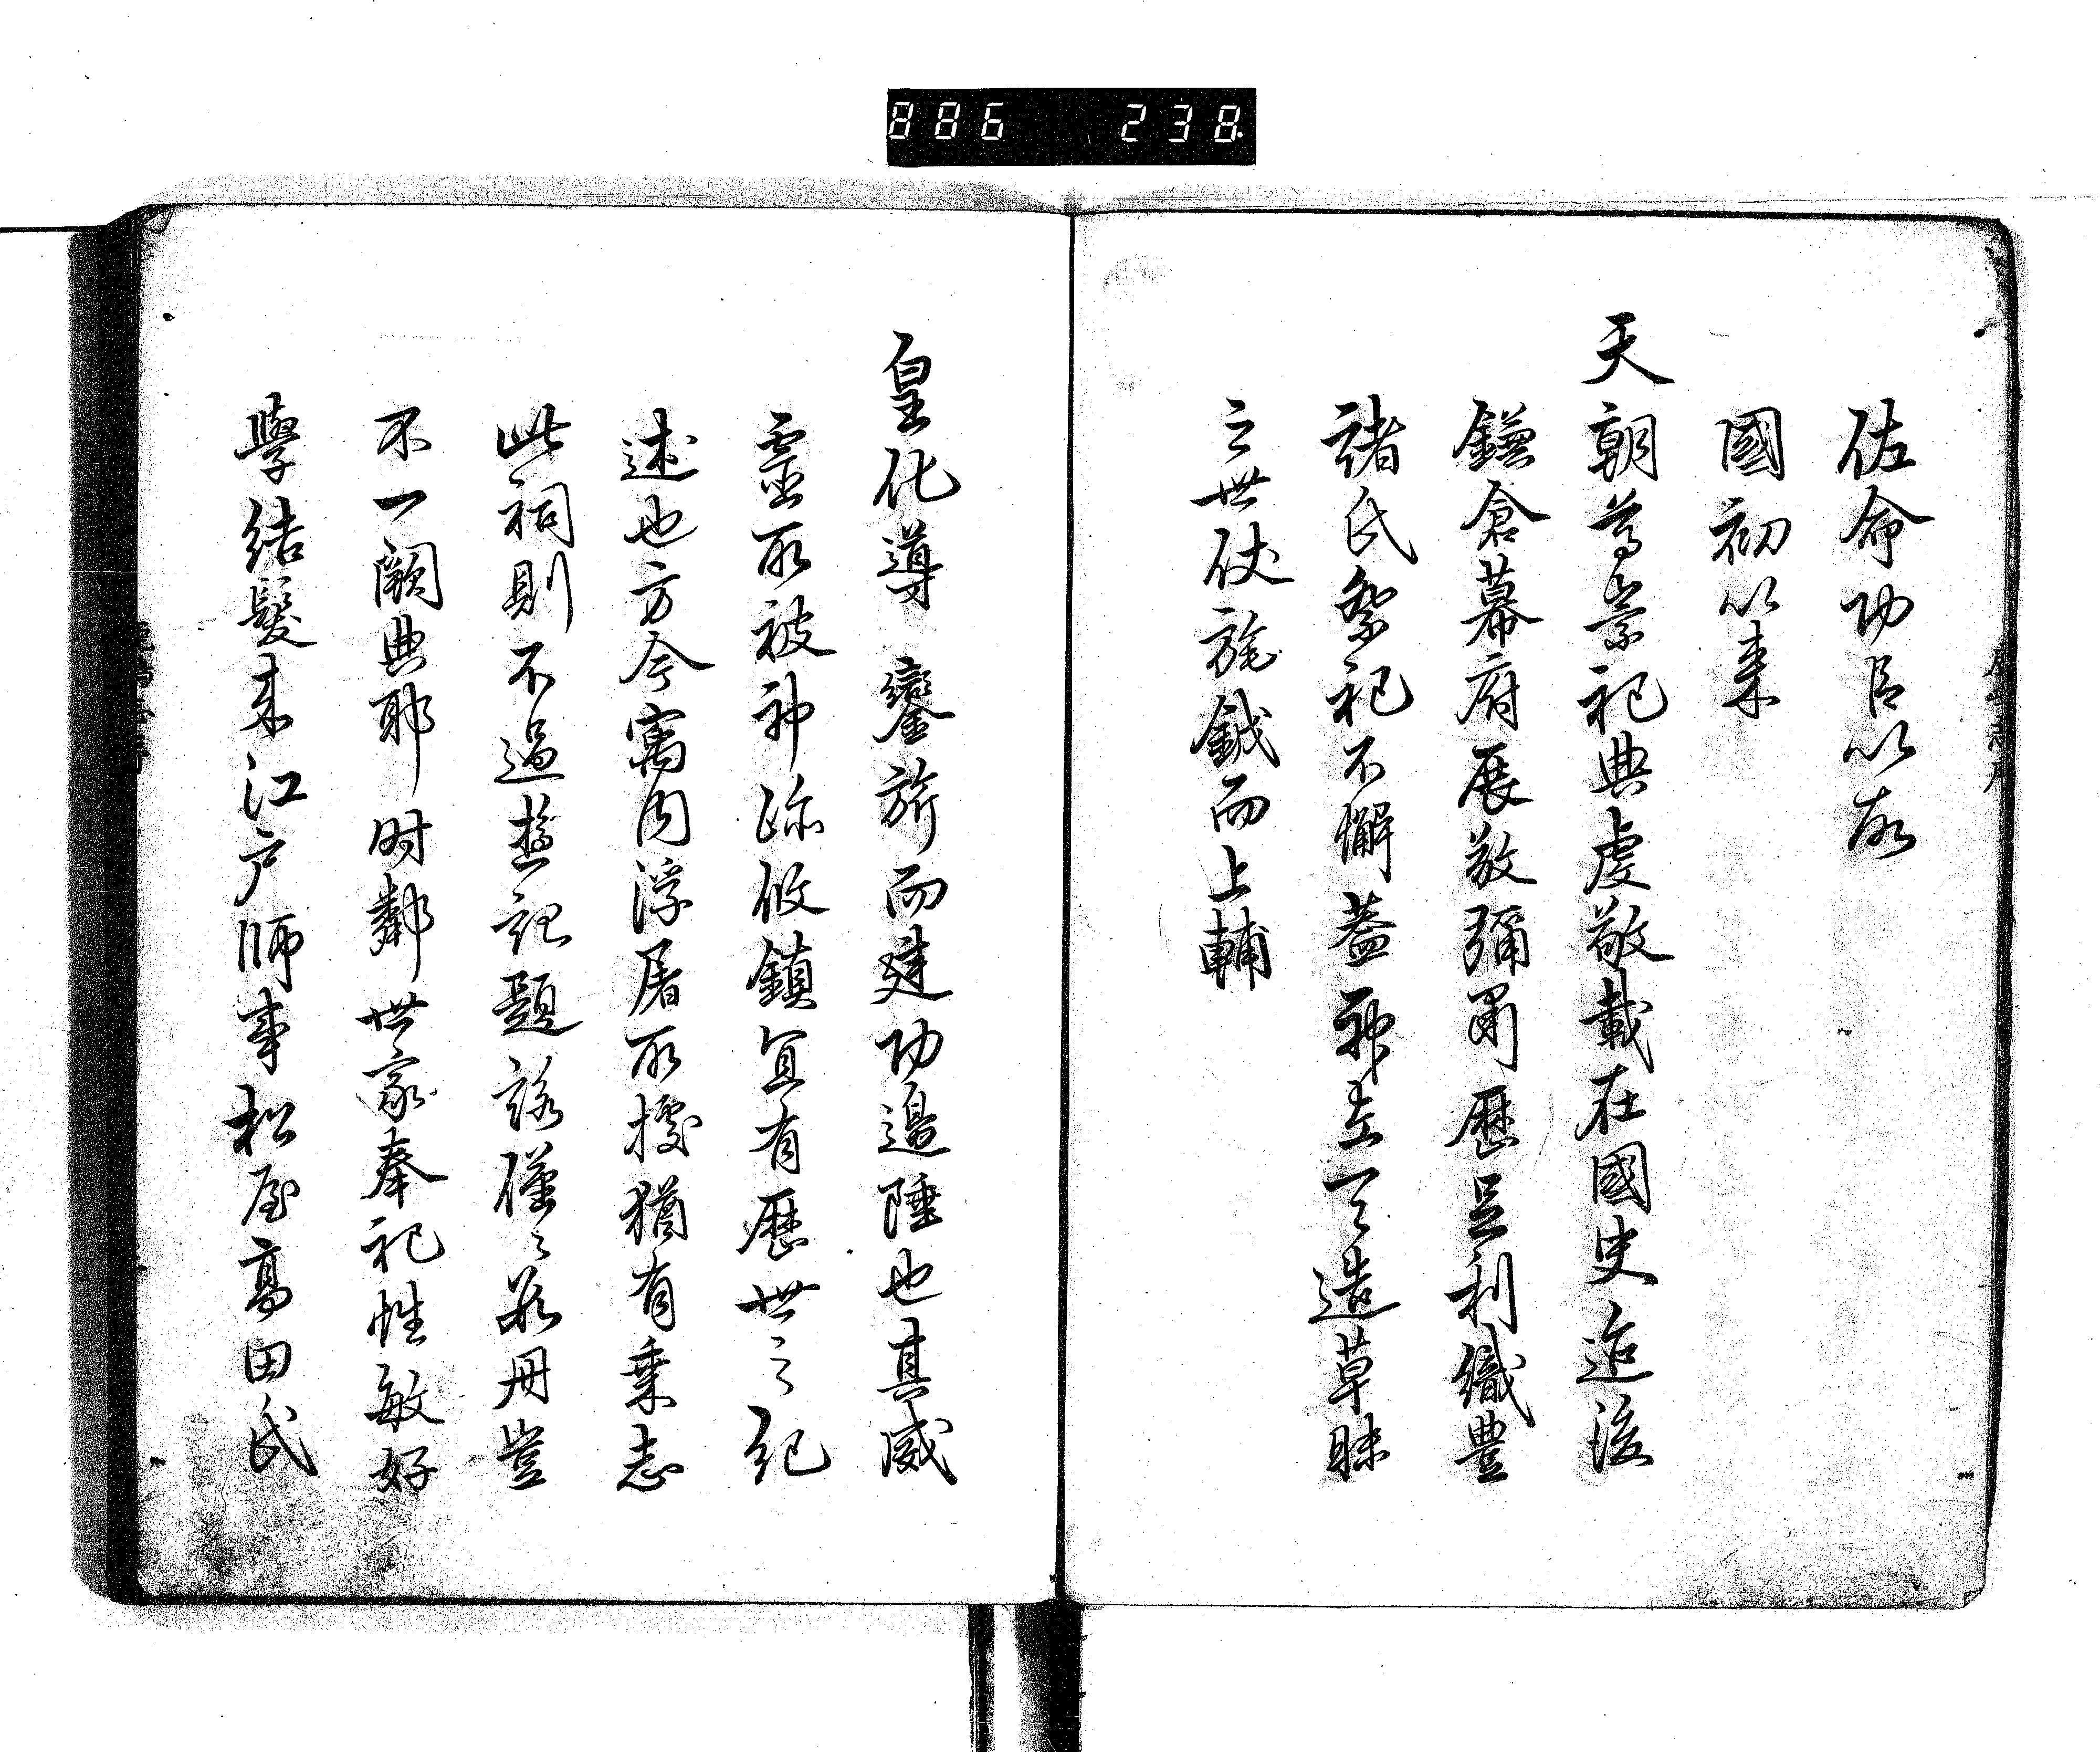 886 238
佐命功臣以故
國初以来
天朝尊崇祀典虔敬載在國史迨後
鎌倉幕府展敬彌肅歴足利織豊
諸氏祭祀不懈蓋神立天造草昧
之世仗旄鉞而上輔
皇化導鑾旂而建功邉陲也其威
靈所被神跡攸鎮宜有歴世之紀
述也方今寓内浮屠所據猶有乗志
此祠則不過遊記題詠僅々數冊豈
不一闕典耶时鄰世家奉祀性敏好
學結髪来江戸師事松屋高田氏